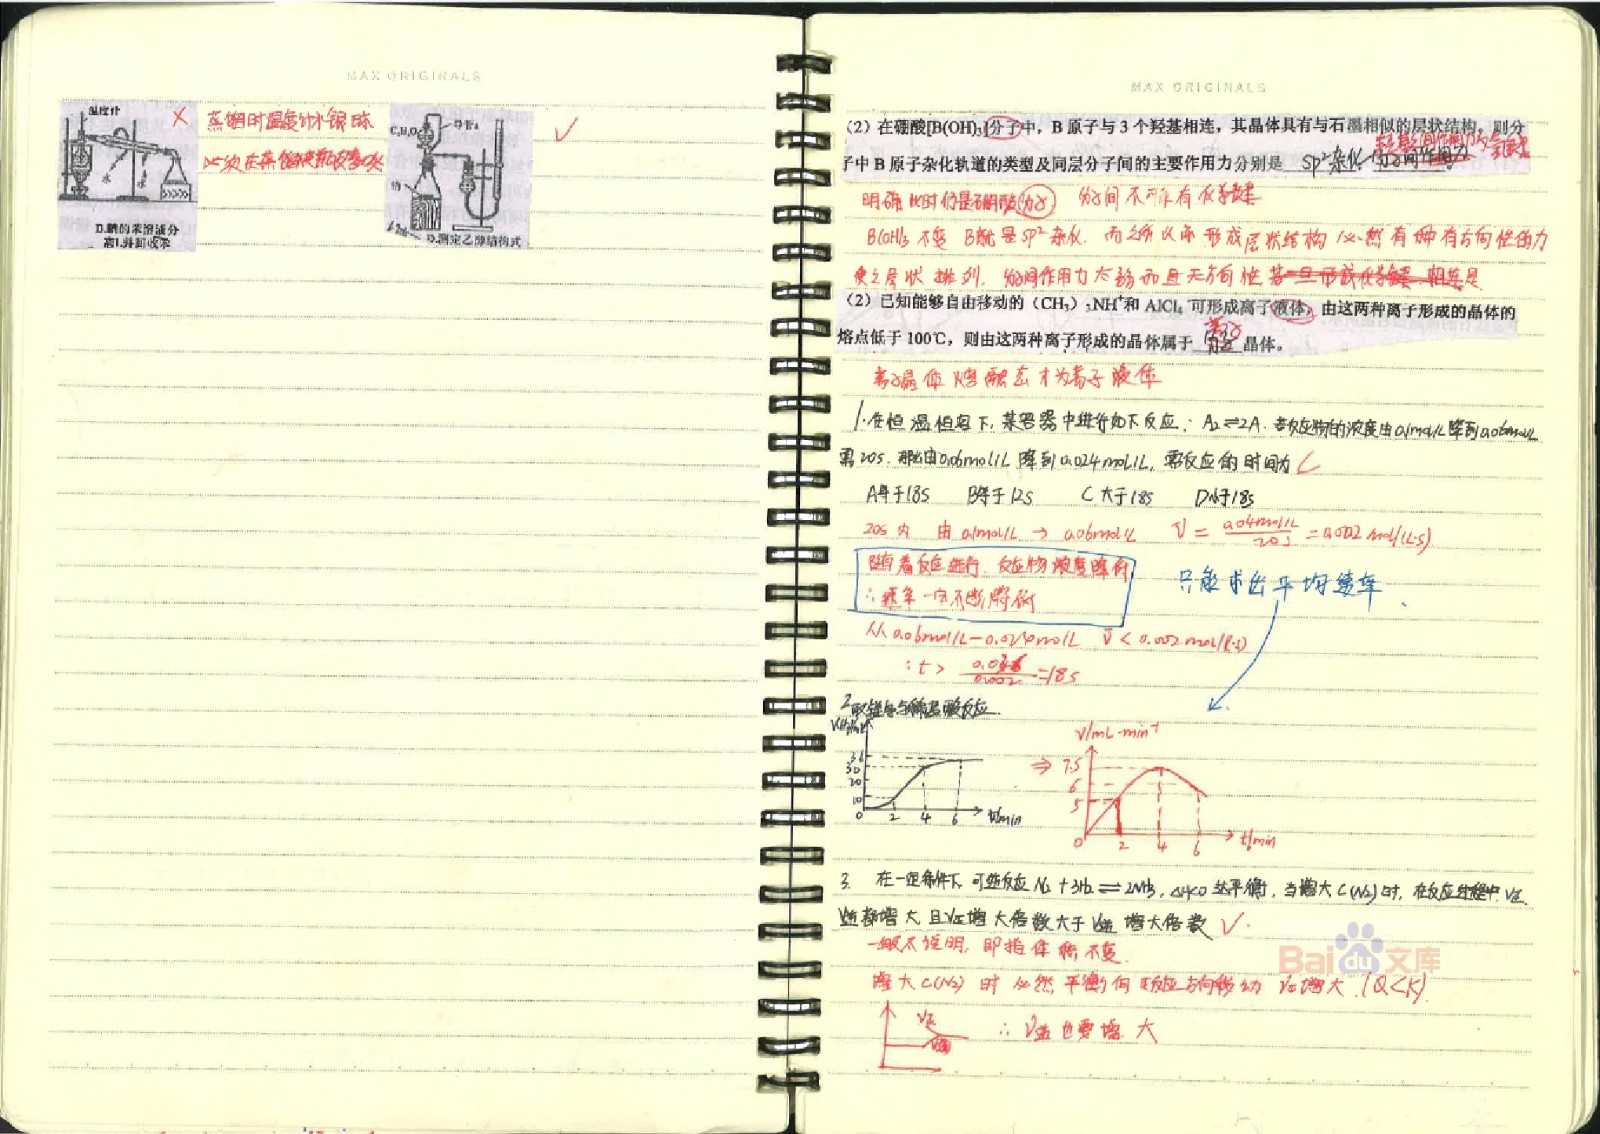 MAX ORIGINALS
温度计
水
水
D.碘的苯溶液分
离I₂并回收苯
蒸馏时温度计水银球
C₂H₆O
钠
D.测定乙醇结构式
MAX ORIGINALS
(2) 在硼酸[B(OH)₃]分子中,B 原子与 3 个羟基相连,其晶体具有与石墨相似的层状结构。则分
子中 B 原子杂化轨道的类型及同层分子间的主要作用力分别是 sp²杂化 分子间作用力
氢键
明确此时仍是硼酸分子 分子间不可能有化学键
B(OH)₃不变 B就是sp²杂化.而之所以能形成层状结构必然有种有方向性的力
使之层状排列.分子间作用力太弱而且无方向性
(2) 已知能够自由移动的 (CH₃)₃NH⁺和 AlCl₄⁻可形成离子液体,由这两种离子形成的晶体的
熔点低于 100℃,则由这两种离子形成的晶体属于 离子 晶体。
分子
离子晶体熔融态才为离子液体
1.在恒温恒容下,某容器中进行如下反应: A₂⇌2A.若反应物的浓度由0.1mol/L降到0.06mol/L
需20s.那么由0.06mol/L降到0.024mol/L,需反应的时间为 C
A等于18s B等于12s C大于18s D小于18s
20s内 由0.1mol/L → 0.06mol/L V̄ = 0.04mol/L / 20s = 0.002 mol/(L·s)
随着反应进行.反应物浓度降低
∴速率一定不断降低
只能求出平均速率.
从0.06mol/L-0.024mol/L V̄ < 0.002mol/(L·s)
∴t > 0.036/0.002 = 18s
V(H₂)/mL
36
30
20
10
0 2 4 6 t/min
⇒
V/mL·min⁻¹
7.5
6
5
0 2 4 6 t/min
3. 在一定条件下,可逆反应N₂+3H₂⇌2NH₃,ΔH<0 达平衡,当增大C(N₂)时,在反应过程中V正.
V逆都增大,且V正增大倍数大于V逆增大倍数 √.
一般不说明,即指体积不变.
增大C(N₂)时必然平衡向正反应方向移动 V正增大.(Q<K).
V正
V逆
∴V逆也要增大
Baidu文库